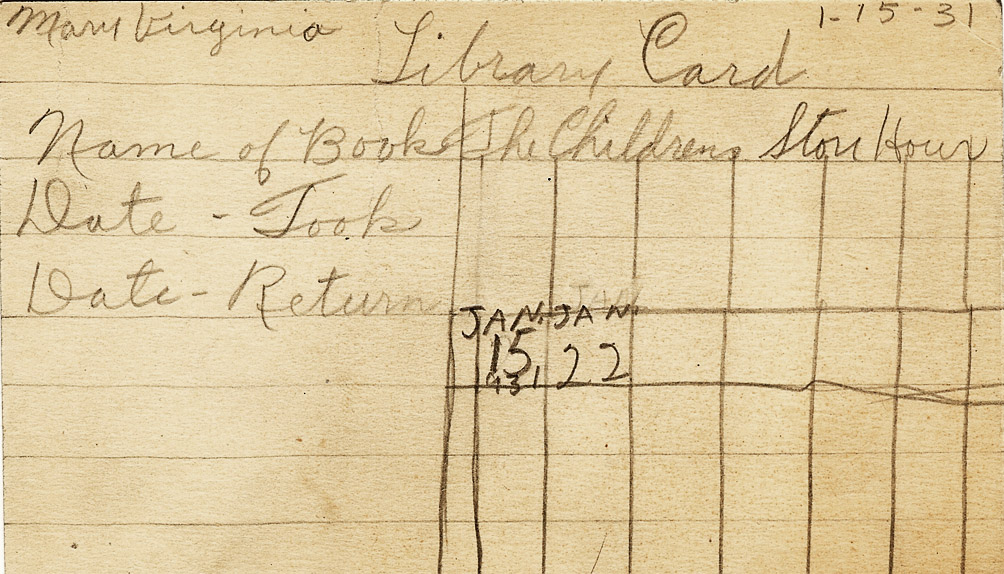 Mary Virginia 1-15-31
Library Card
Name of Book The Childrens Stori Hour
Date - Took
Date - Return
JAN. JAN.
15, 22
1931